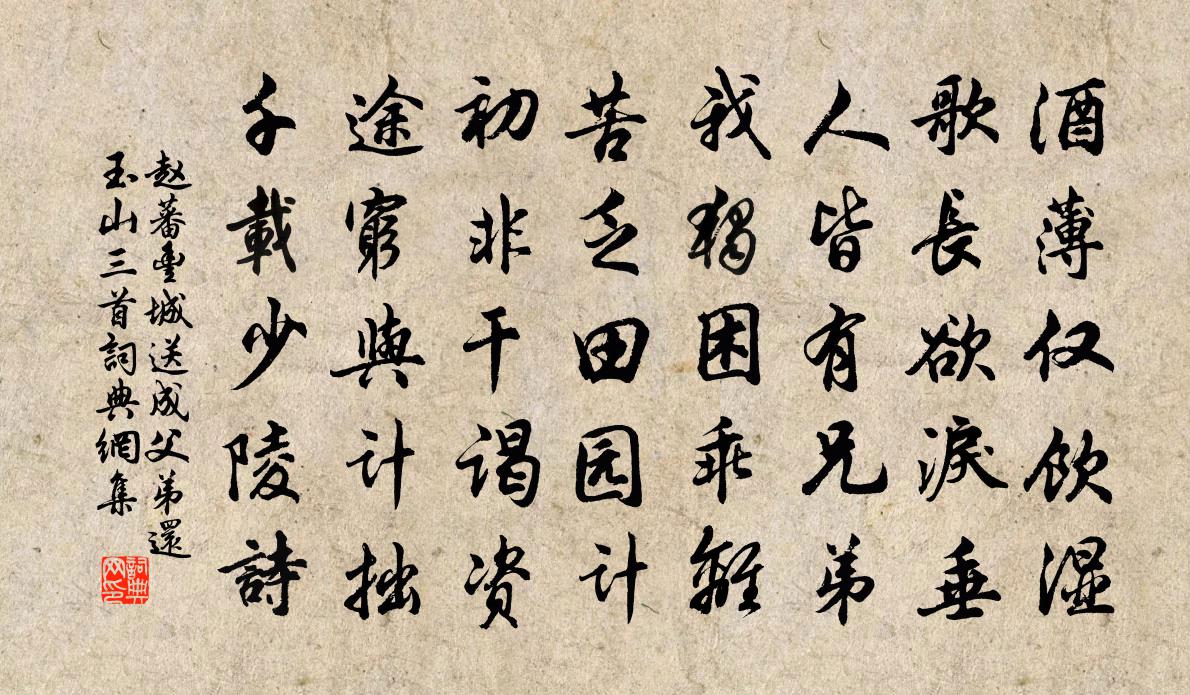 酒薄仅饮湿
歌長欲淚垂
人皆有兄弟
我獨困乖離
苦乏田园计
初非干谒资
途窮與计拙
千載少陵詩
赵蕃豊城送成父弟還
玉山三首詞典網集
詞典网印